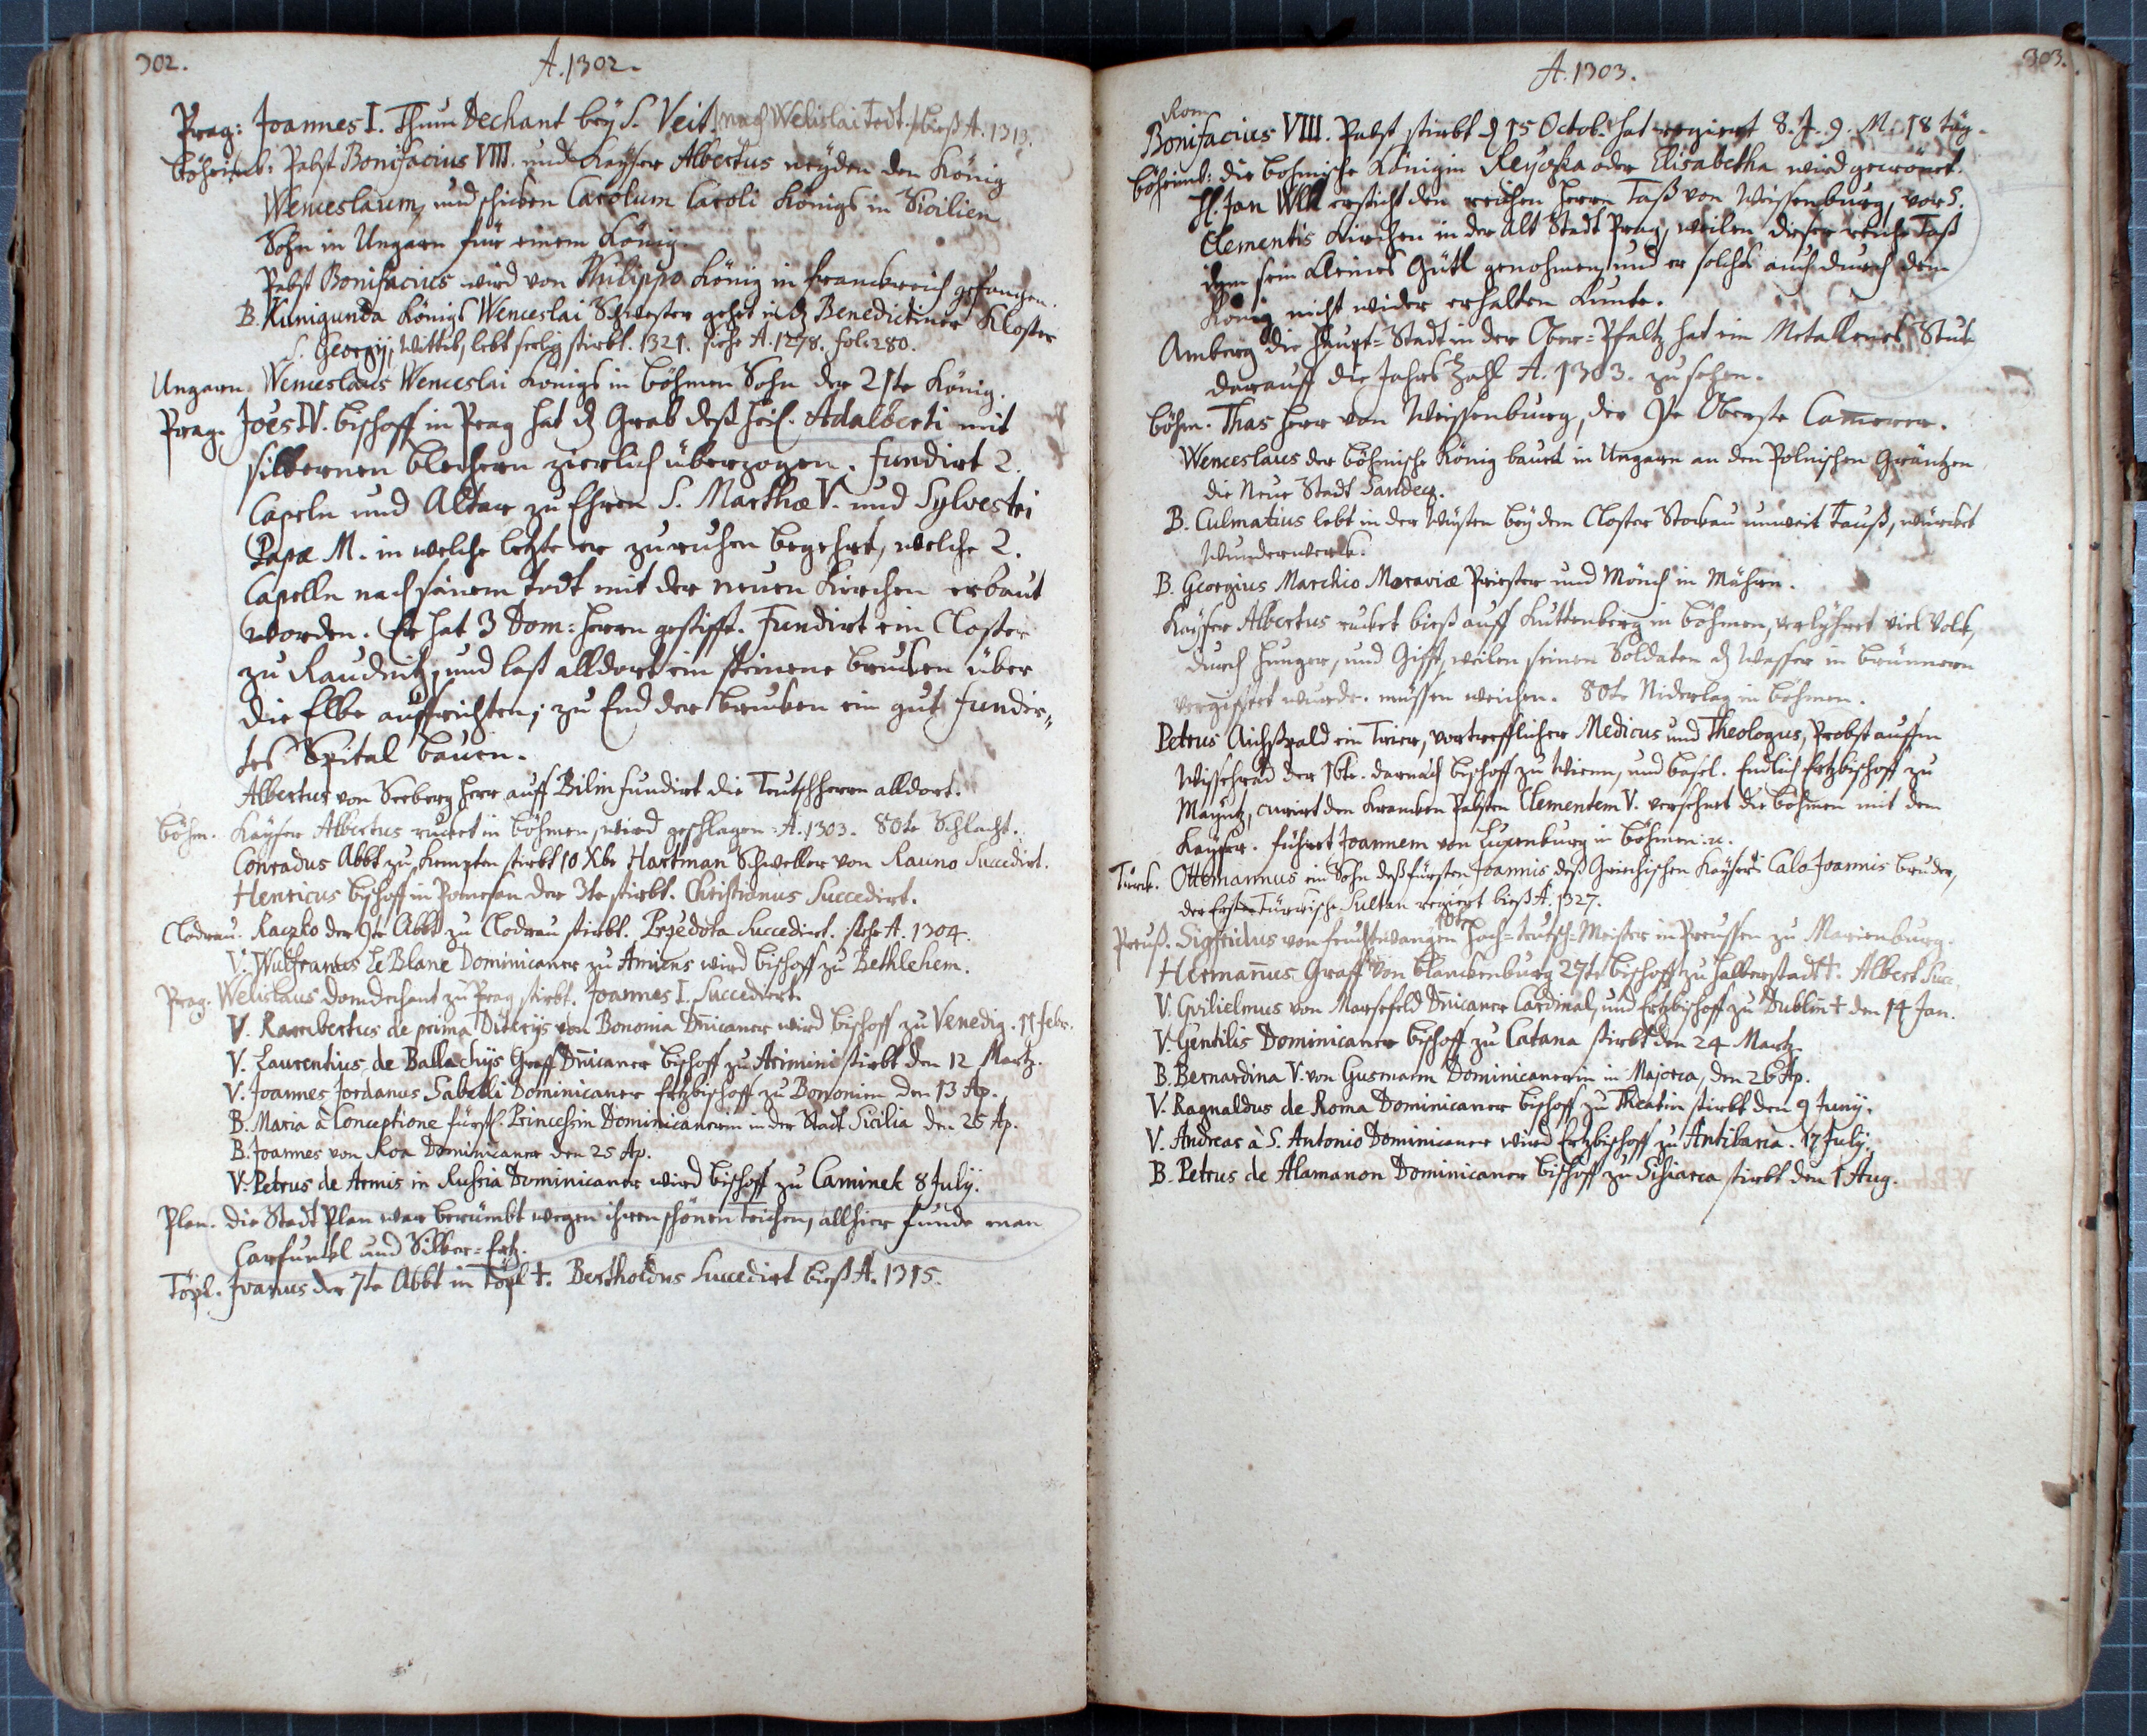 302.
A. 1302.
Prag: Joannes I. Thum Dechant bey S. Veit. nach Welislai Todt. bieß A. 1313.
Böheimb: Pabst Bonifacius VIII. und Kayser Albertus neyden den König
Wenceslaum, und schicken Carolum Caroli Königs in Sicilien
Sohn in Ungarn für einem König.
Pabst Bonifacius wird von Philippo König in Franckreich gefangen.
B. Kunigunda Königs Wenceslai Schwester gehet in Benedictiner Kloster
S. Georgij, Wittib, lebt seelig stirbt. 1321. siehe A. 1278. fol. 280.
Ungarn Wenceslaus Wenceslai Königs in Böhmen Sohn der 21te König.
Prag. Joēs IV. Bischoff in Prag hat Grab deß Heil. Adalberti mit
silbernen Blechern zierlich überzogen. Fundirt 2.
Capeln und Altar zu Ehren S. Marthæ V. und Sylvestri
Papæ M. in welche letzte er zu ruhen begehrt, welche 2.
Capelln nach seinem todt mit der neuen Kirchen erbaut
worden. Er hat 3 Dom: Herrn gestifft. Fundirt ein Closter
zu Raudnitz, und last alldort ein steinene Brucken über
die Elbe auffrichten; zu End der Brucken ein gut Fundir=
tes Spital bauen.
Albertus von Seeberg Herr auff Bilin fundirt die Teutschherrn alldort.
Böhm. Kayser Albertus rucket in Böhmen, wird geschlagen. A. 1303. 80te Schlacht.
Conradus Abbt zu Kempten stirbt 10 Xbr Hartman Schweller von Rauno Succedirt.
Henricus Bischoff in Pomesan der 3te stirbt. Christianus Succedirt.
Clodrau. Raczko der 9te Abbt zu Clodrau stirbt. Przedota Succedirt. siehe A. 1304.
V. Wulfranus Le Blanc Dominicaner zu Amiens wird Bischoff zu Bethlehem.
Prag. Welislaus Domdechant zu Prag stirbt. Joannes I. Succedirt.
V. Rambertus de prima Diterijs von Bononia Dnicaner wird Bischoff zu Venedig. 11 Febr.
V. Laurentius de Ballachijs Graff Dnicaner Bischoff zu Arimini stirbt den 12 Martz.
V. Joannes Jordanus Sabelli Dominicaner Ertzbischoff zu Bononien den 13 Ap.
B. Maria à Conceptione fürstl. Princessin Dominicanerin in der Stadt Sicilia den 25 Ap.
B. Joannes von Roa Dominicaner den 25 Ap.
V. Petrus de Armis in Russia Dominicaner wird Bischoff zu Caminek 8 Julij.
Plan. die Stadt Plan war berümbt wegen ihren schönen Teichen, allhier funde man
Carfunkel und Silber=Ertz.
Töpl. Ivanus der 7te Abbt in Töpl †. Bertholdus Succedirt bieß A. 1315.
303.
A. 1303.
Rom
Bonifacius VIII. Pabst stirbt 15 Octob. hat regiert 8. J. 9. M. 18 täg.
Böheimb: die Böhmische Königin Reycka oder Elisabetha wird gecrönet.
H. Jan Wlk ersticht den reichen Herrn Taß von Weissenburg, vor S.
Clementis Kirchen in der Alt Stadt Prag, weilen dieser reiche Taß
ihm sein kleines Gütl genohmen, und er solches auch durch dem
König nicht wider erhalten kunte.
Amberg die Haupt=Stadt in der Ober=Pfaltz hat ein Metallenes Stuk
darauff die Jahrs Zahl A. 1303. zu sehen.
Böhm. Thas Herr von Weissenburg, der Oberste Camerer.
Wenceslaus der Böhmische König bauet in Ungarn an den Polnischen Gräntzen
die Neue Stadt Sandecz.
B. Culmatius lebt in der Wüsten bey dem Closter Stockau unweit Tauß, würcket
Wunderwerck.
B. Georgius Marchio Moraviæ Priester und Mönch in Mähren.
Kayser Albertus rucket bieß auff Kuttenberg in Böhmen, verlihret viel Volk,
durch Hunger, und Gifft, weilen seinen Soldaten Wasser in Brünnern
vergifftet wurde. müssen weichen. 80te Niderlag in Böhmen.
Petrus Aichspald ein Trier, vortrefflicher Medicus und Theologus, Probst auffm
Wissehrad der 16te. darnach Bischoff zu Wienn, und Basel. Endlich Ertzbischoff zu
Mayntz, curirt den krancken Pabsten Clementem V. versehnet die Böhmen mit dem
Kayser. führet Joannem von Luxenburg in Böhmen. rc.
Türck. Ottomannus ein Sohn deß fürsten Joannis, deß Griechischen Kaysers Calo Joannis Bruder,
der Erste Türckische Sultan regiert bieß A. 1327.
10te
Preuß. Sigfridus von Feuchtwangen Hoch=teutsch=Meister in Preussen zu Marienburg.
Hermannus Graff von Blanckenburg 27te Bischoff zu Halberstadt †. Albert Succ.
V. Guilielmus von Marsefeld Dnicaner Cardinal, und Ertzbischoff zu Dublin † den 14 Jan.
V. Gentilis Dominicaner Bischoff zu Catana stirbt den 24 Martz.
B. Bernardina V. von Gusmann Dominicanerin in Majorca, den 26 Ap.
V. Ragnaldus de Roma Dominicaner Bischoff zu Theatin stirbt den 9 Junij.
V. Andreas à S. Antonio Dominicaner wird Ertzbischoff zu Antibaria. 17 Julij.
B. Petrus de Alamanon Dominicaner Bischoff zu Sisiarca stirbt den 1 Aug.